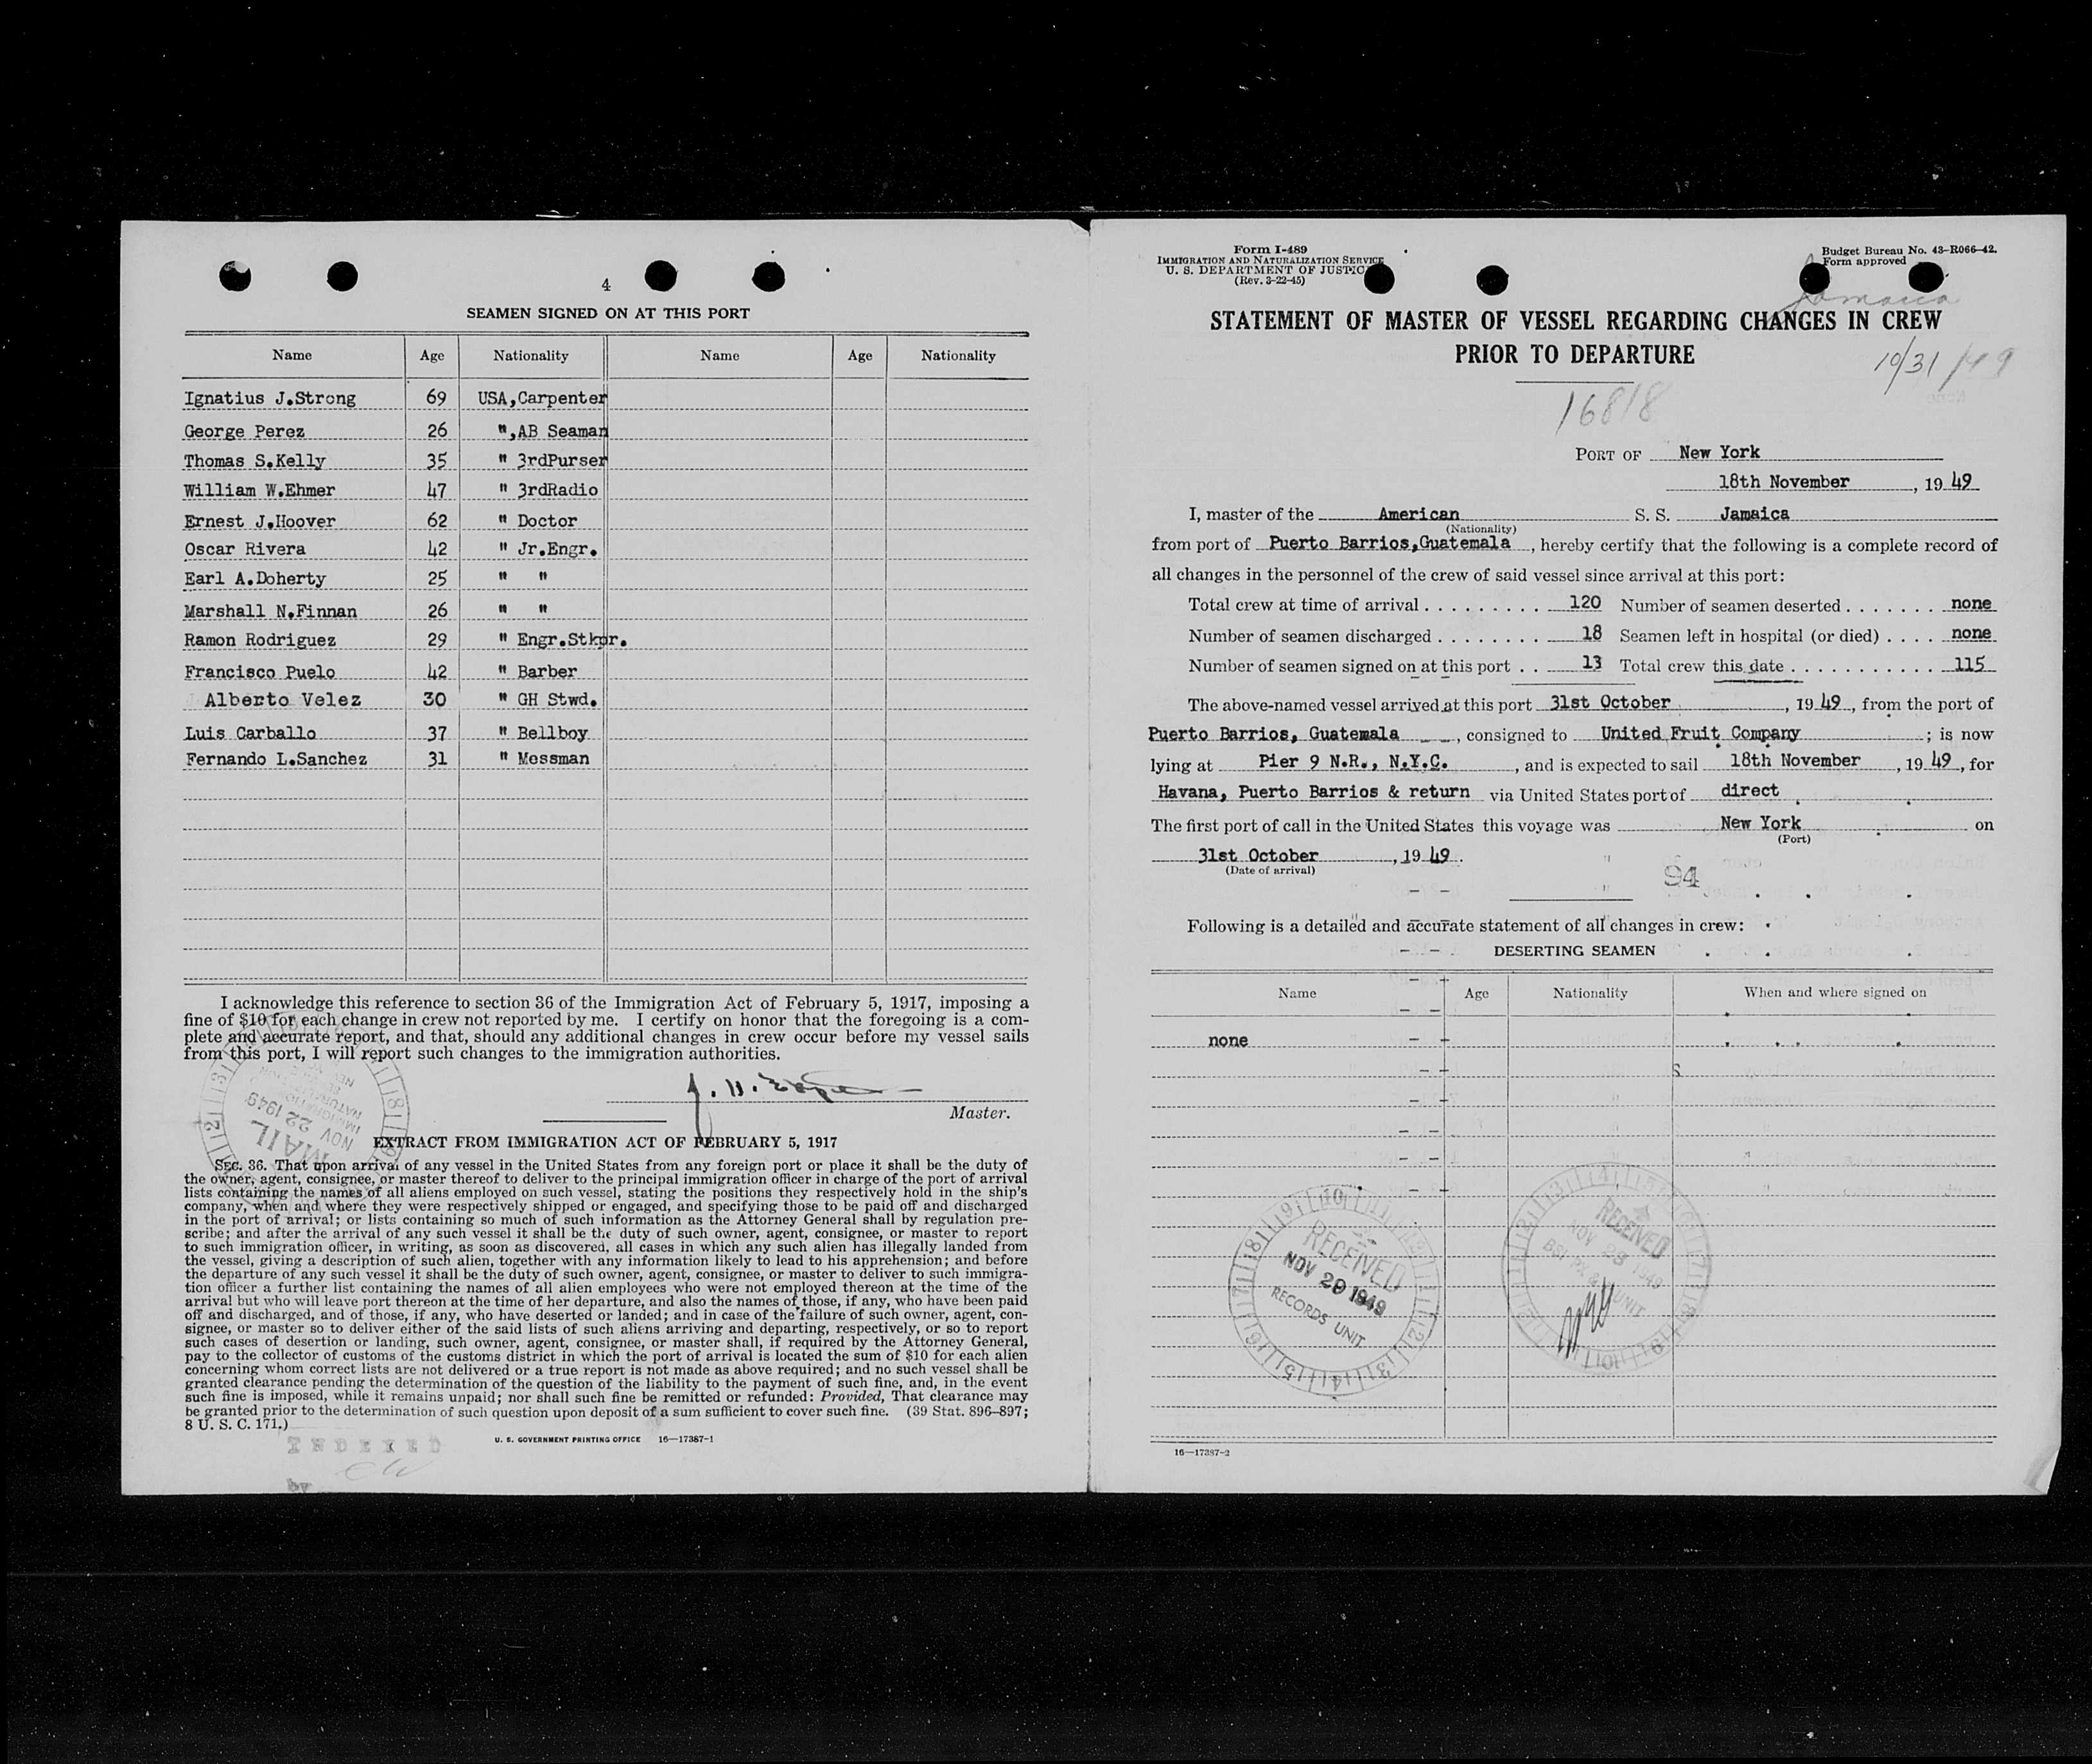 4
SEAMEN SIGNED ON AT THIS PORT
Name Age Nationality Name Age Nationality
Ignatius J.Strong 69 USA,Carpenter
George Perez 26 ",AB Seaman
Thomas S.Kelly 35 " 3rdPurser
William W.Ehmer 47 " 3rdRadio
Ernest J.Hoover 62 " Doctor
Oscar Rivera 42 " Jr.Engr.
Earl A.Doherty 25 " "
Marshall N.Finnan 26 " "
Ramon Rodriguez 29 " Engr.Stkpr.
Francisco Puelo 42 " Barber
Alberto Velez 30 " GH Stwd.
Luis Carballo 37 " Bellboy
Fernando L.Sanchez 31 " Messman
I acknowledge this reference to section 36 of the Immigration Act of February 5, 1917, imposing a
fine of $10 for each change in crew not reported by me. I certify on honor that the foregoing is a com-
plete and accurate report, and that, should any additional changes in crew occur before my vessel sails
from this port, I will report such changes to the immigration authorities.
Master.
MAIL
NOV 22 1949
EXTRACT FROM IMMIGRATION ACT OF FEBRUARY 5, 1917
SEC. 36. That upon arrival of any vessel in the United States from any foreign port or place it shall be the duty of
the owner, agent, consignee, or master thereof to deliver to the principal immigration officer in charge of the port of arrival
lists containing the names of all aliens employed on such vessel, stating the positions they respectively hold in the ship's
company, when and where they were respectively shipped or engaged, and specifying those to be paid off and discharged
in the port of arrival; or lists containing so much of such information as the Attorney General shall by regulation pre-
scribe; and after the arrival of any such vessel it shall be the duty of such owner, agent, consignee, or master to report
to such immigration officer, in writing, as soon as discovered, all cases in which any such alien has illegally landed from
the vessel, giving a description of such alien, together with any information likely to lead to his apprehension; and before
the departure of any such vessel it shall be the duty of such owner, agent, consignee, or master to deliver to such immigra-
tion officer a further list containing the names of all alien employees who were not employed thereon at the time of the
arrival but who will leave port thereon at the time of her departure, and also the names of those, if any, who have been paid
off and discharged, and of those, if any, who have deserted or landed; and in case of the failure of such owner, agent, con-
signee, or master so to deliver either of the said lists of such aliens arriving and departing, respectively, or so to report
such cases of desertion or landing, such owner, agent, consignee, or master shall, if required by the Attorney General,
pay to the collector of customs of the customs district in which the port of arrival is located the sum of $10 for each alien
concerning whom correct lists are not delivered or a true report is not made as above required; and no such vessel shall be
granted clearance pending the determination of the question of the liability to the payment of such fine, and, in the event
such fine is imposed, while it remains unpaid; nor shall such fine be remitted or refunded: Provided, That clearance may
be granted prior to the determination of such question upon deposit of a sum sufficient to cover such fine. (39 Stat. 896–897;
8 U. S. C. 171.)
U. S. GOVERNMENT PRINTING OFFICE 16—17387-1
INDEXED
by
Form I-489
IMMIGRATION AND NATURALIZATION SERVICE
U. S. DEPARTMENT OF JUSTICE
(Rev. 3-22-45)
Budget Bureau No. 43-R066-42.
Form approved
Jamaica
STATEMENT OF MASTER OF VESSEL REGARDING CHANGES IN CREW
PRIOR TO DEPARTURE
10/31/49
16818
PORT OF New York
18th November, 19 49
I, master of the American S. S. Jamaica
(Nationality)
from port of Puerto Barrios,Guatemala, hereby certify that the following is a complete record of
all changes in the personnel of the crew of said vessel since arrival at this port:
Total crew at time of arrival . . . . . . . . . 120 Number of seamen deserted . . . . . . . none
Number of seamen discharged . . . . . . . . 18 Seamen left in hospital (or died) . . . . none
Number of seamen signed on at this port . . 13 Total crew this date . . . . . . . . . . . 115
The above-named vessel arrived at this port 31st October, 19 49, from the port of
Puerto Barrios, Guatemala, consigned to United Fruit Company; is now
lying at Pier 9 N.R., N.Y.C., and is expected to sail 18th November, 19 49, for
Havana, Puerto Barrios & return via United States port of direct
The first port of call in the United States this voyage was New York on
(Port)
31st October, 19 49.
(Date of arrival)
94
Following is a detailed and accurate statement of all changes in crew:
DESERTING SEAMEN
Name Age Nationality When and where signed on
none
RECEIVED
NOV 29 1949
RECORDS UNIT
RECEIVED
NOV 23 1949
UNIT
16—17387-2